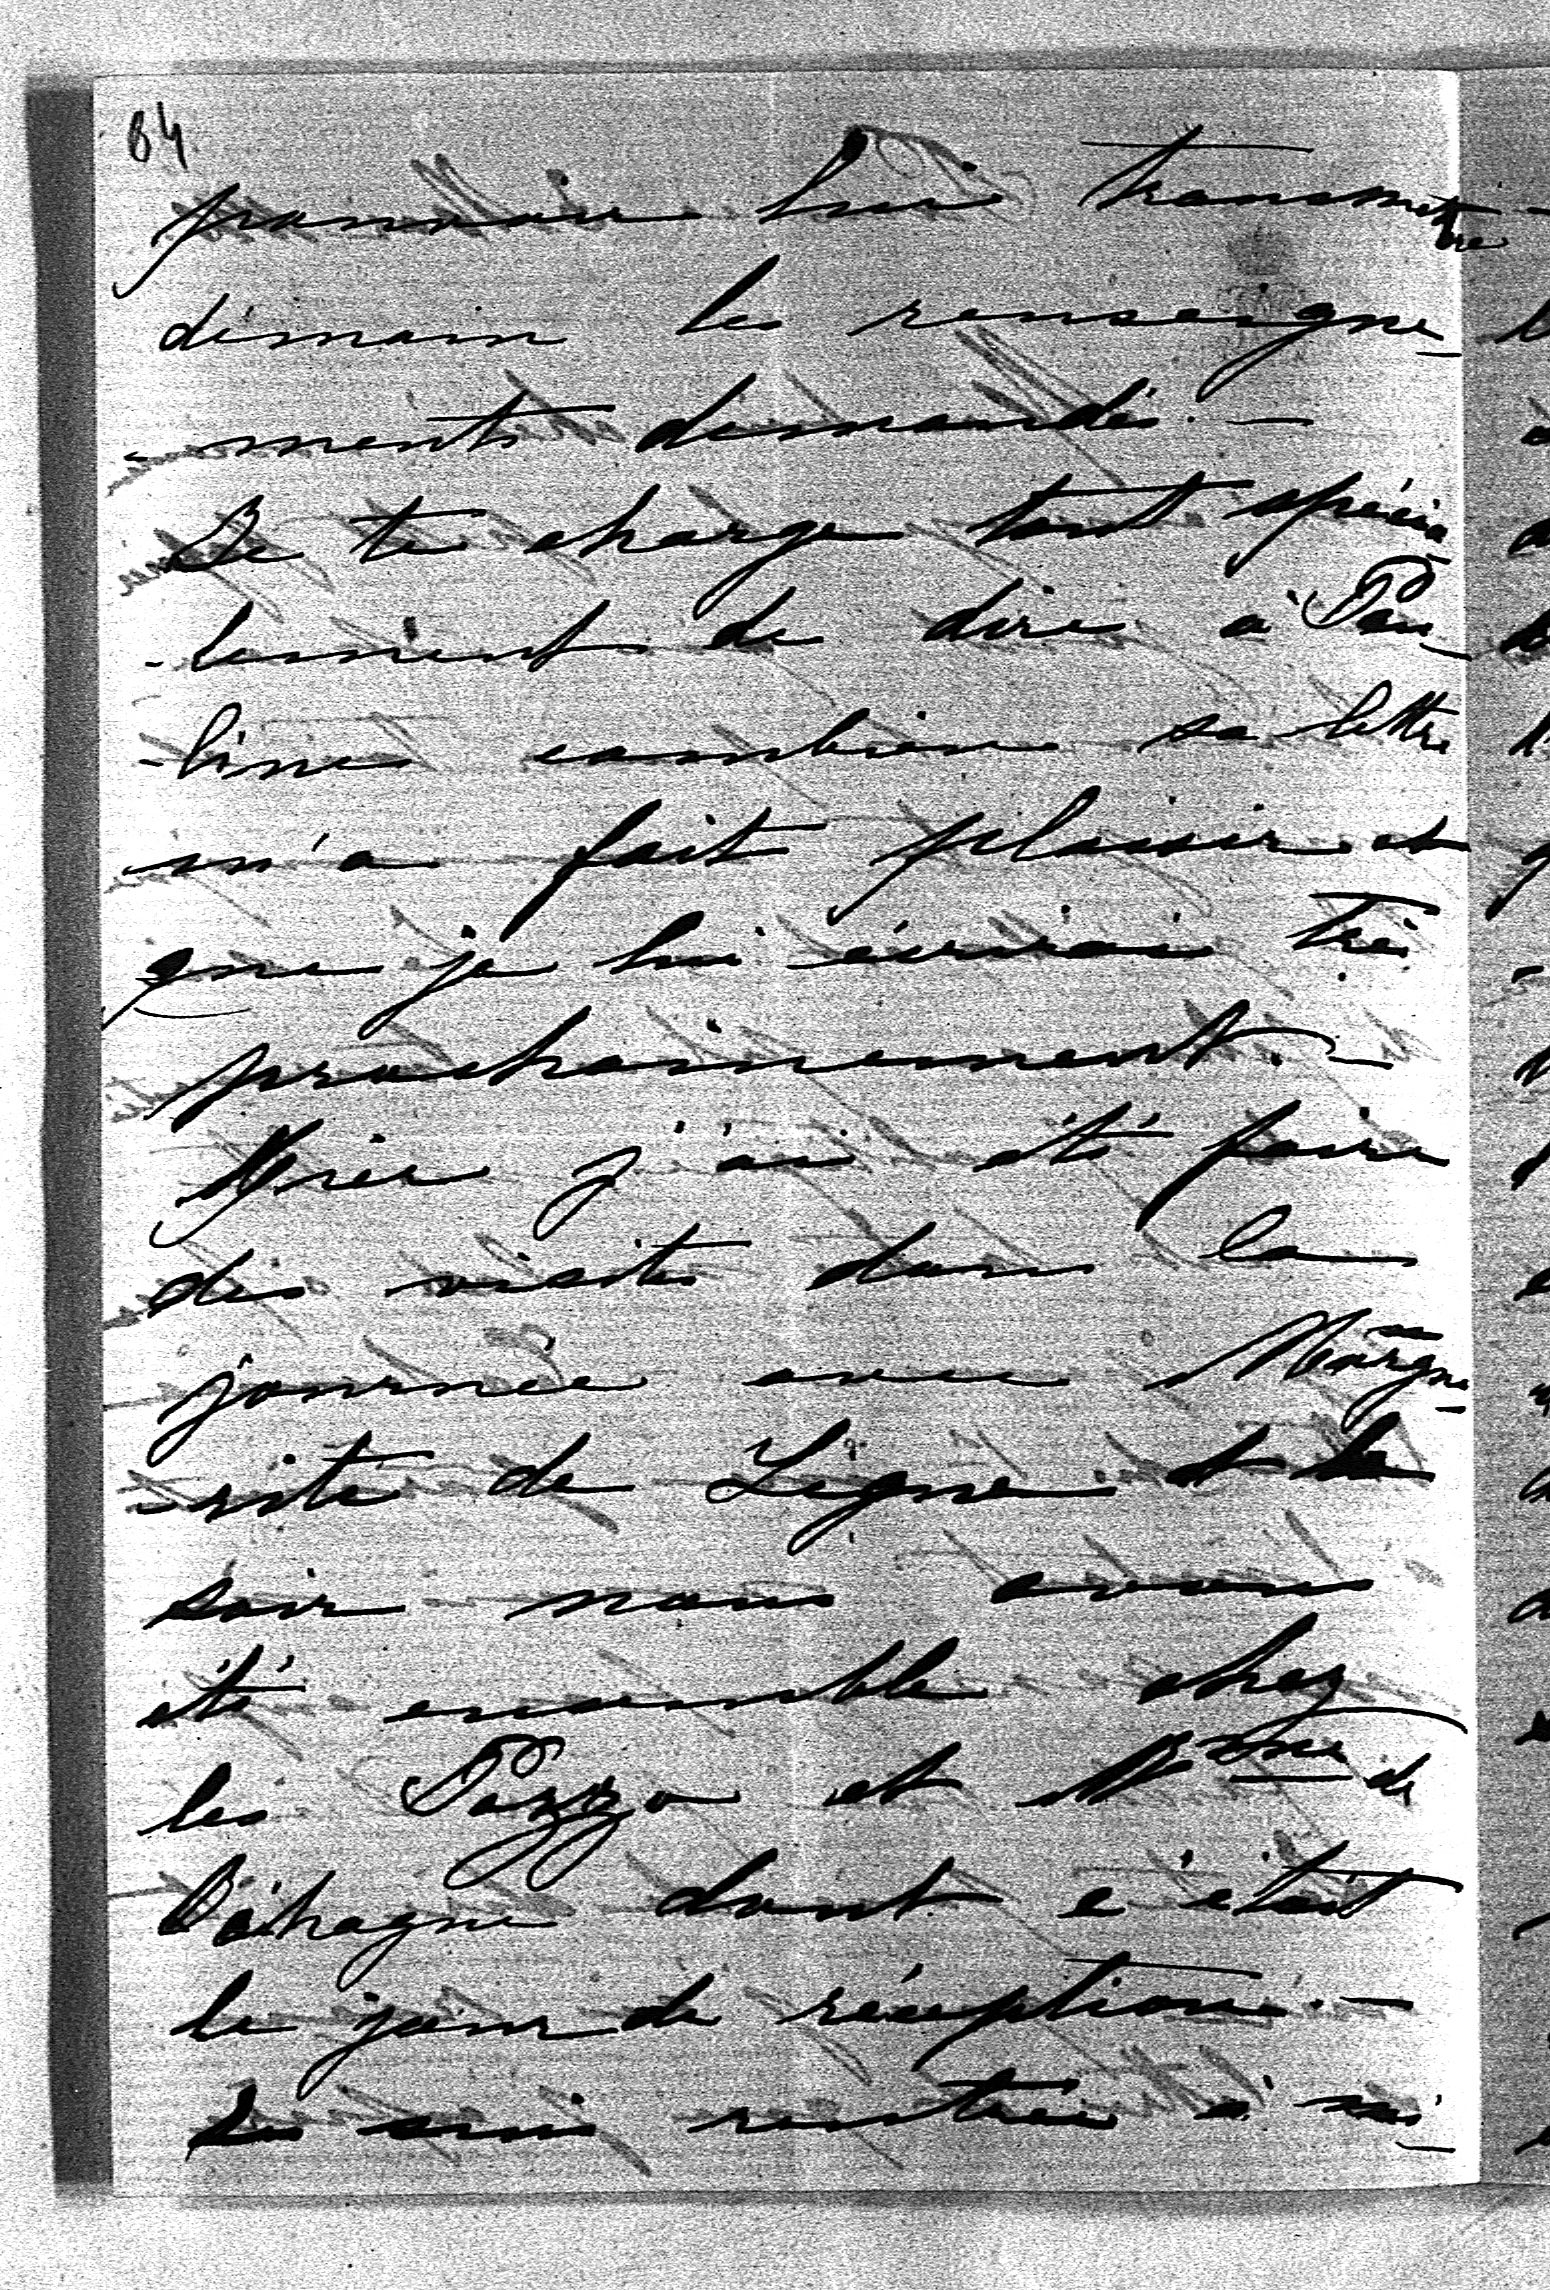 84
pouvoir lui transmettre
demain les renseigne-
-ments demandés. —
Je te charge tout spécia-
-lement de dire à Pau-
-line combien sa lettre
m'a fait plaisir et
que je lui écrirai très
prochainement. —
Hier j'ai été faire
des visites dans la
journée avec Margue-
-rite de Ligne et le
soir nous avons
été ensemble chez
les Pozzo et Mme de
Béhague dont c'était
le jour de réception. —
Je suis rentrée à mi-